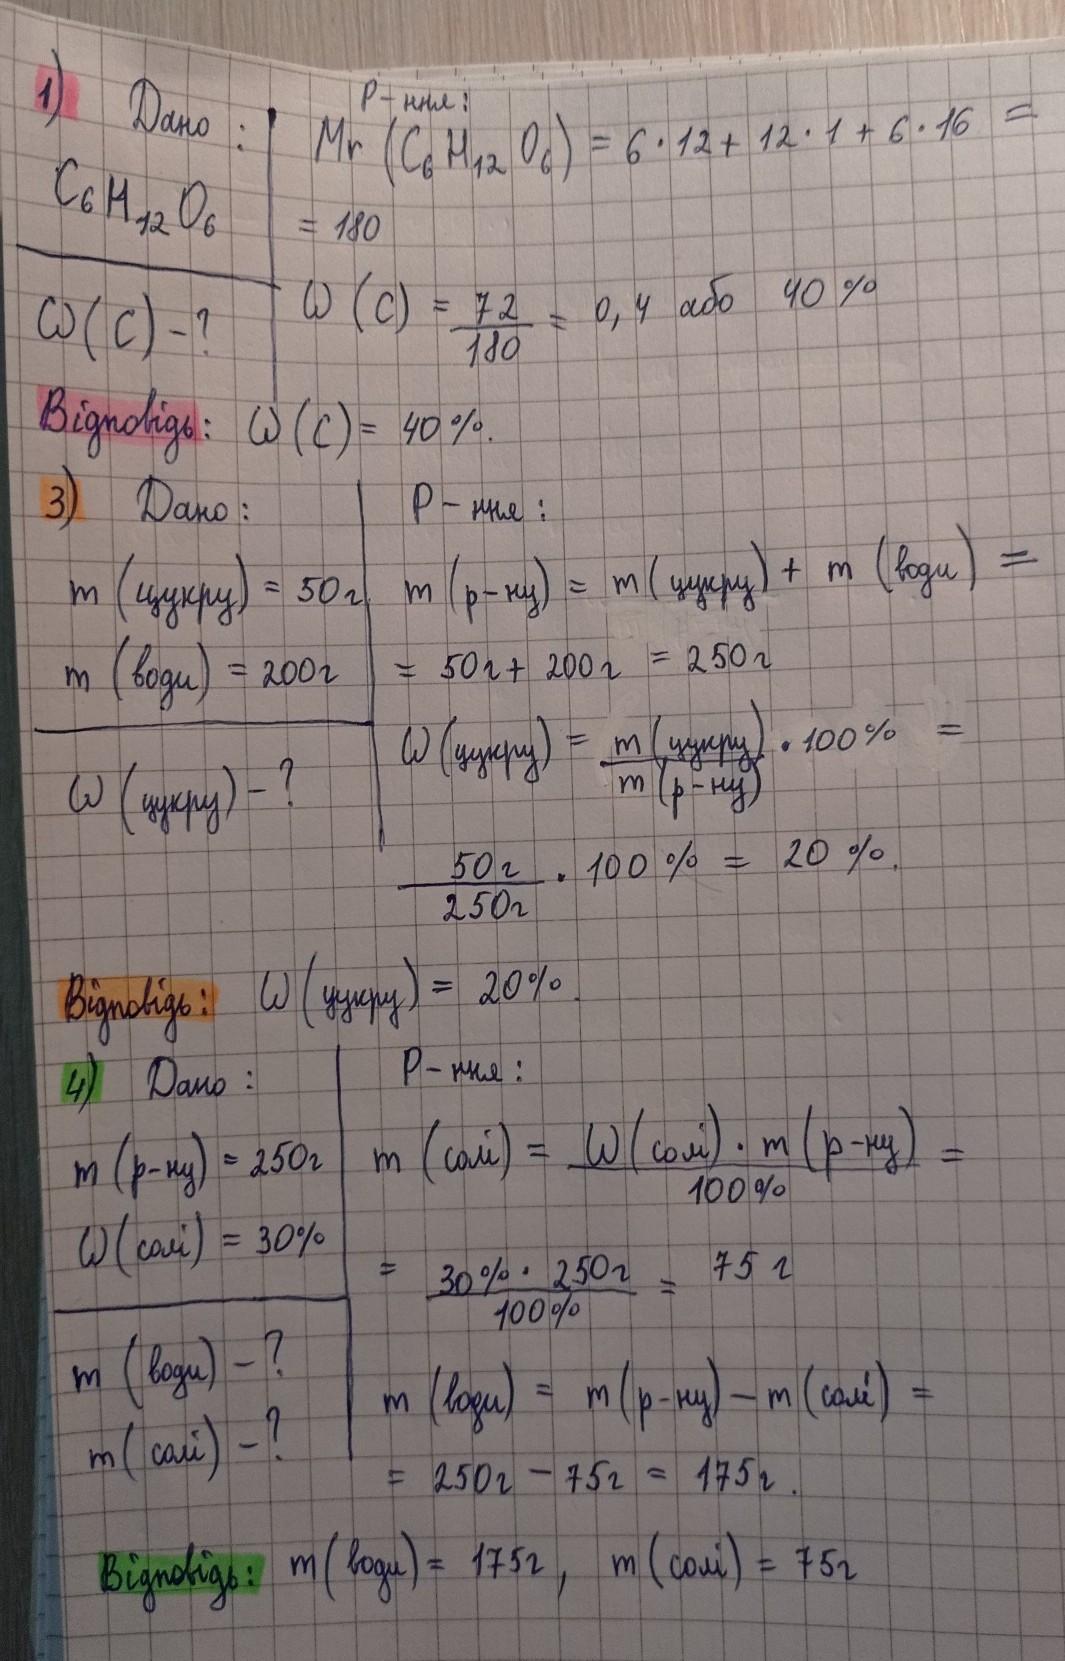 1) Дано: Р-ння:
C₆H₁₂O₆
Mr (C₆H₁₂O₆) = 6·12 + 12·1 + 6·16 =
= 180
ω(C) - ?
ω(C) = 72/180 = 0,4 або 40%
Відповідь: ω(C) = 40%.
3) Дано: Р-ння:
m (цукру) = 50г
m (води) = 200г
ω (цукру) - ?
m (р-ну) = m (цукру) + m (води) =
= 50г + 200г = 250г
ω (цукру) = m (цукру)/m (р-ну) · 100% =
50г/250г · 100% = 20%.
Відповідь: ω (цукру) = 20%.
4) Дано: Р-ння:
m (р-ну) = 250г
ω (солі) = 30%
m (води) - ?
m (солі) - ?
m (солі) = ω (солі) · m (р-ну)/100% =
= 30% · 250г/100% = 75 г
m (води) = m (р-ну) - m (солі) =
= 250г - 75г = 175г.
Відповідь: m (води) = 175г, m (солі) = 75г